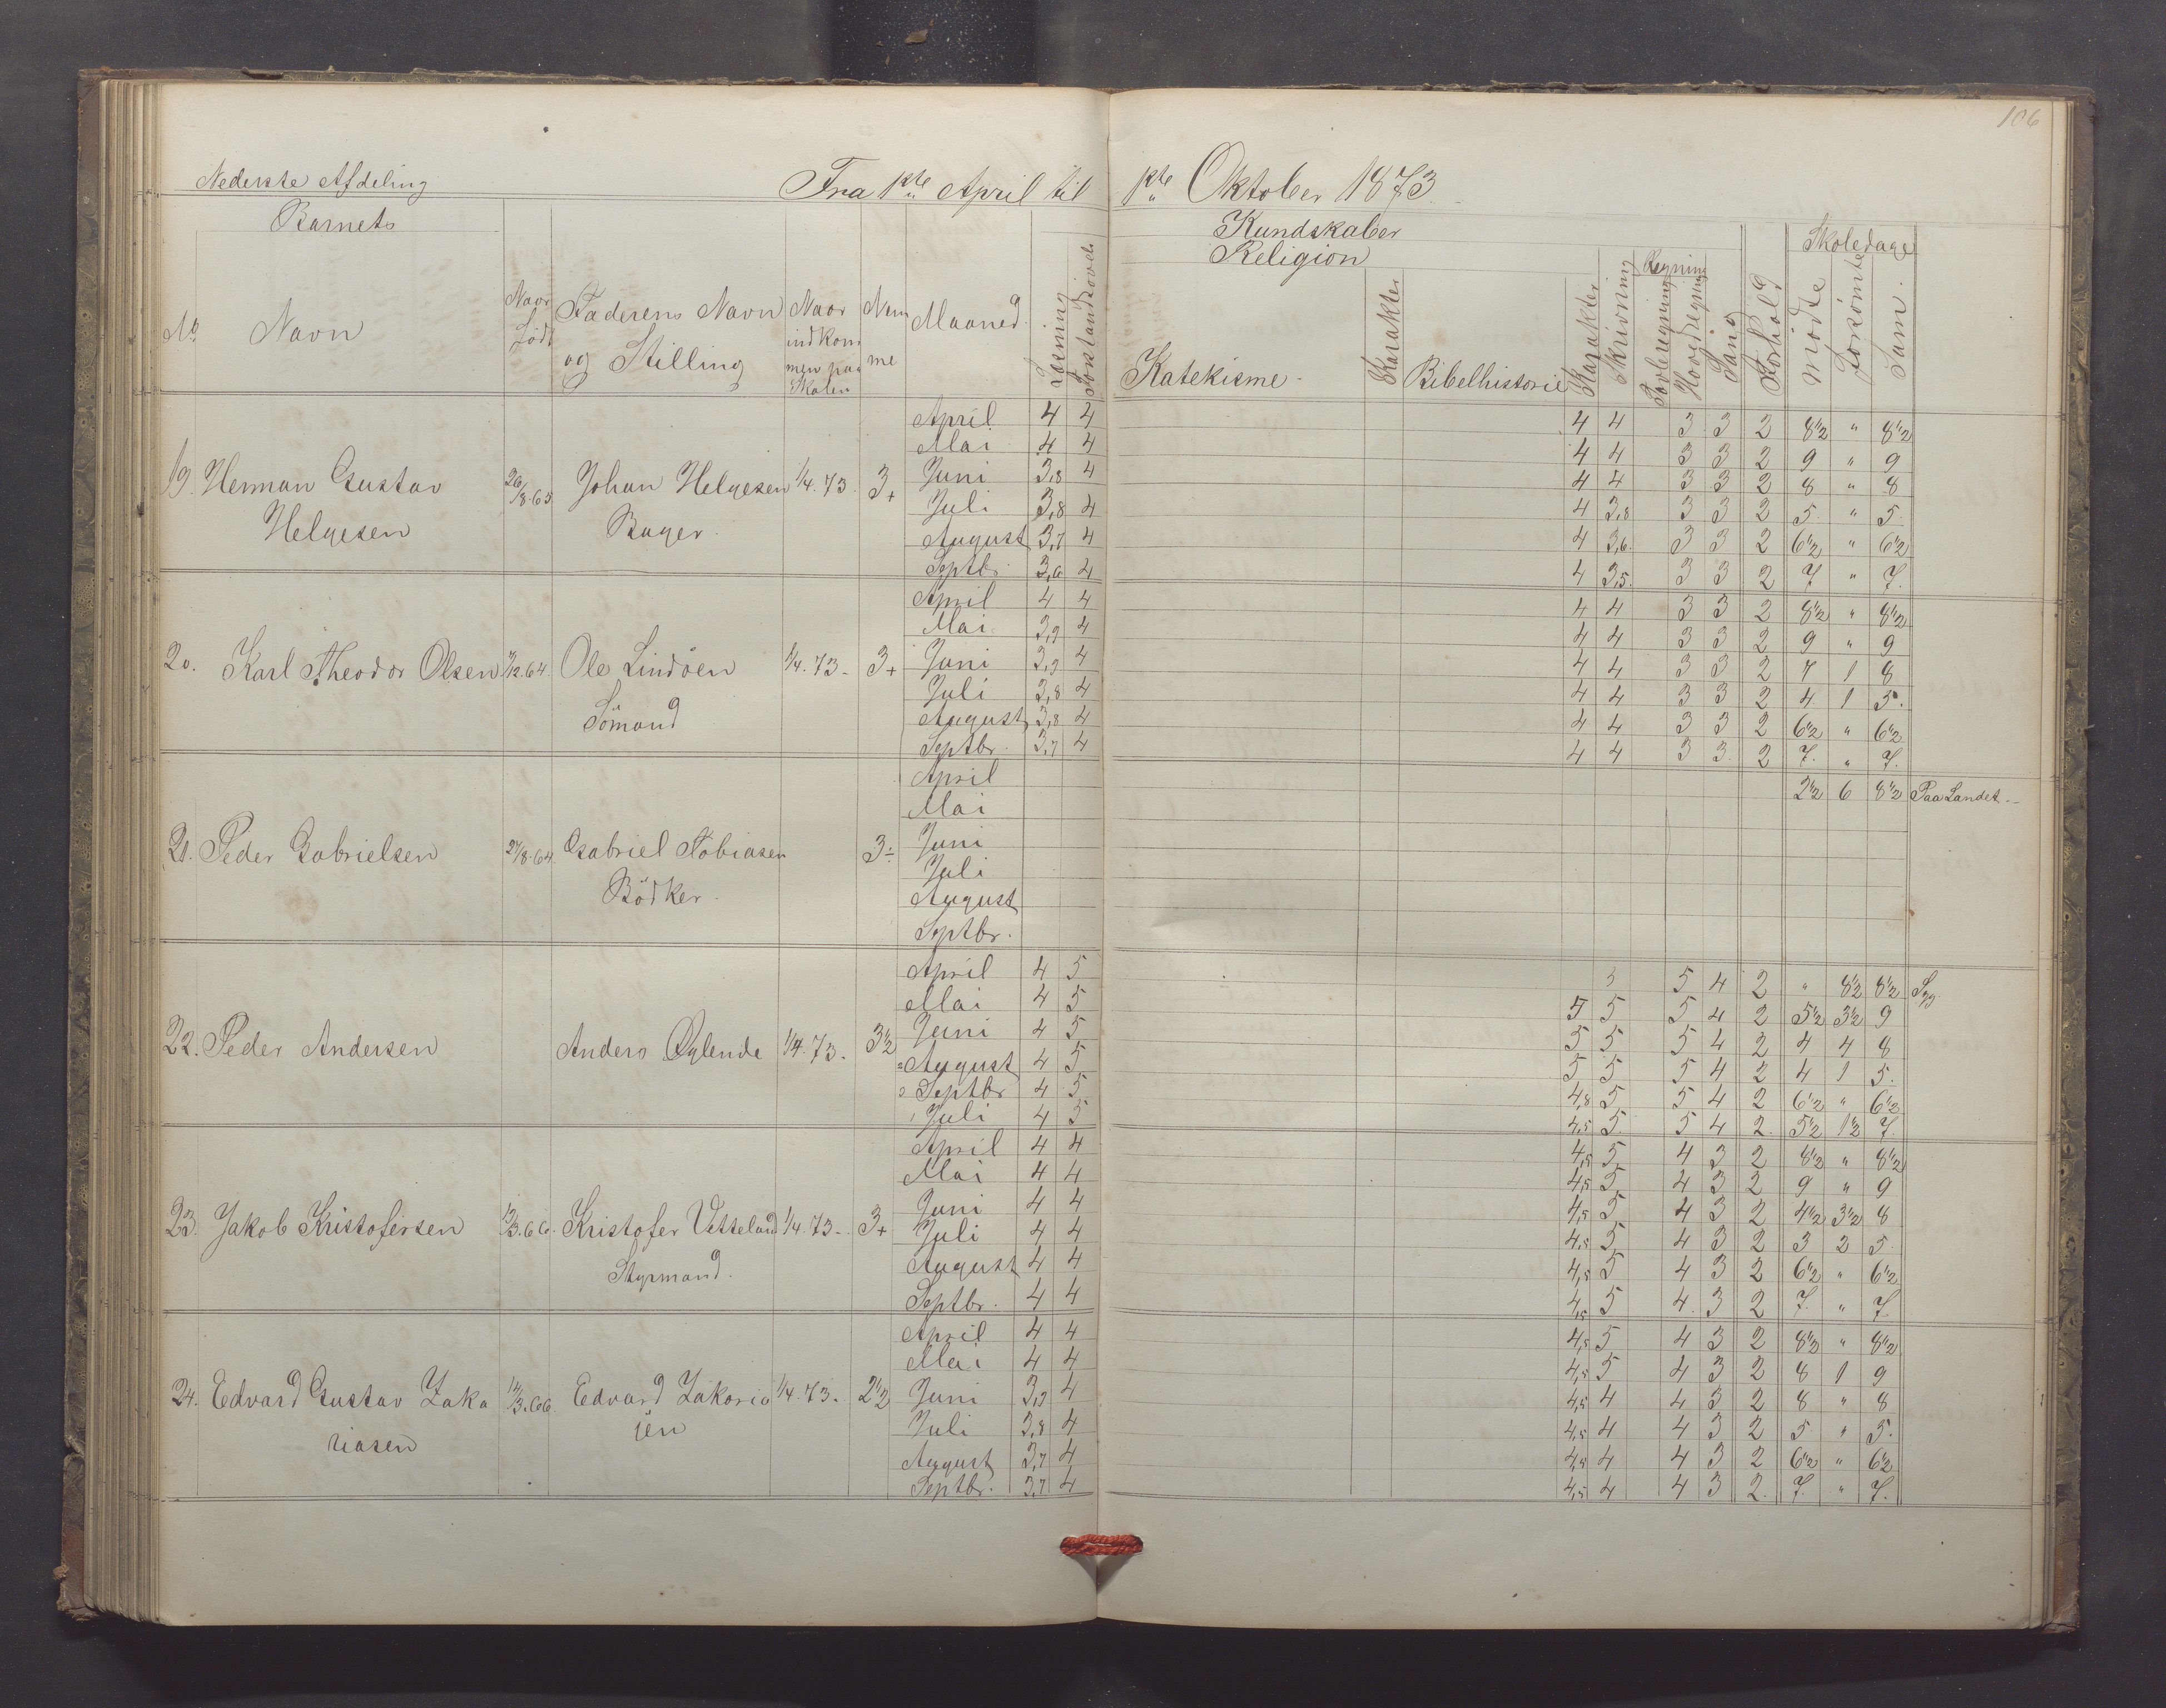 106
Nederste Afdeling Fra 1ste April til 1ste Oktober 1873.
Barnets Kundskaber Skoledage
Religion Regning
No Navn Naar Født Faderens Navn og Stilling Naar indkommen paa Skolen Nemme Maaned Læsning Forstandsøvelse Katekisme Karakter Bibelhistorie Karakter Skrivning Tavleregning Hovedregning Sang Forhold mødte Forsømte Sum.
April 4 4 4 4 3 3 2 8½ " 8½
Mai 4 4 4 4 3 3 2 9 " 9
19. Herman Gustav Helgesen 26/8.65 Johan Helgesen Bager. 1/4.73. 3+ Juni 3,8 4 4 4 3 3 2 8 " 8
Juli 3,8 4 4 3,8 3 3 2 5. " 5.
August 3,7 4 4 3,6. 3 3 2 6½ " 6½
Septbr. 3,6 4 4 3,5. 3 3 2 7 " 7.
April 4 4 4 4 3 3 2 8½ " 8½
Mai 3,9 4 4 4 3 3 2 9 " 9
20. Karl Theodor Olsen /12.64. Ole Lindöen Sömand 1/4.73- 3+ Juni 3,9 4 4 4 3 3 2 7 1 8
Juli 3,8 4 4 4 3 3 2 4 1 5.
August 3,8 4 4 4 3 3 2 6½ " 6½
Septbr. 3,7 4 4 4 3 3. 2 7. " 7.
April 2½ 6 8½ Paa Landet.-
Mai
21. Peder Gabrielsen 27/8.64 Gabriel Tobiasen Bödker. 3÷ Juni
Juli
August
Septbr.
April 4 5 5 4 2 " 8½ 8½ Syg
Mai 4 5 5 5 5 4 2 5½ 3½ 9
22. Peder Andersen Anders Øglende 1/4.73. 3½ Juni 4 5 5 5 5 4 2 4 4 8
2 August 4 5 5 5 5 4 2 4 1 5.
3 Septbr 4 5 4,8 5 5 4 2 6½ " 6½
1 Juli 4 5 4,5 5 5 4 2. 5½ 1½ 7.
April 4 4 4,5 5 4 3 2 8½ " 8½
Mai 4 4 4,5 5 4 3 2 9 " 9
23. Jakob Kristofersen 13/3.66. Kristofer Vetteland Styrmand. 1/4.73- 3+ Juni 4 4 4,5 5 4 3 2 4½ 3½ 8
Juli 4 4 4,5 5 4 3 2 3 2 5.
August 4 4 4,5 5 4 3 2 6½ " 6½
Septbr. 4 4 4,5 5 4. 3 2 7. " 7.
April 4 4 4,5 5 4 3 2 8½ " 8½
Mai 4 4 4,5 5 4 3 2 8 1 9
24. Edvard Gustav Zakariasen /3.66. Edvard Zakariasen 1/4.73. 2½ Juni 3,9 4 4,5 4 4 3 2 8 " 8
Juli 3,8 4 4,5 4 4 3 2 5 " 5.
August 3,7 4 4,5 4 4 3 2 6½ " 6½
Septbr. 3,7 4 4,5 4 4 3 2. 7. " 7.